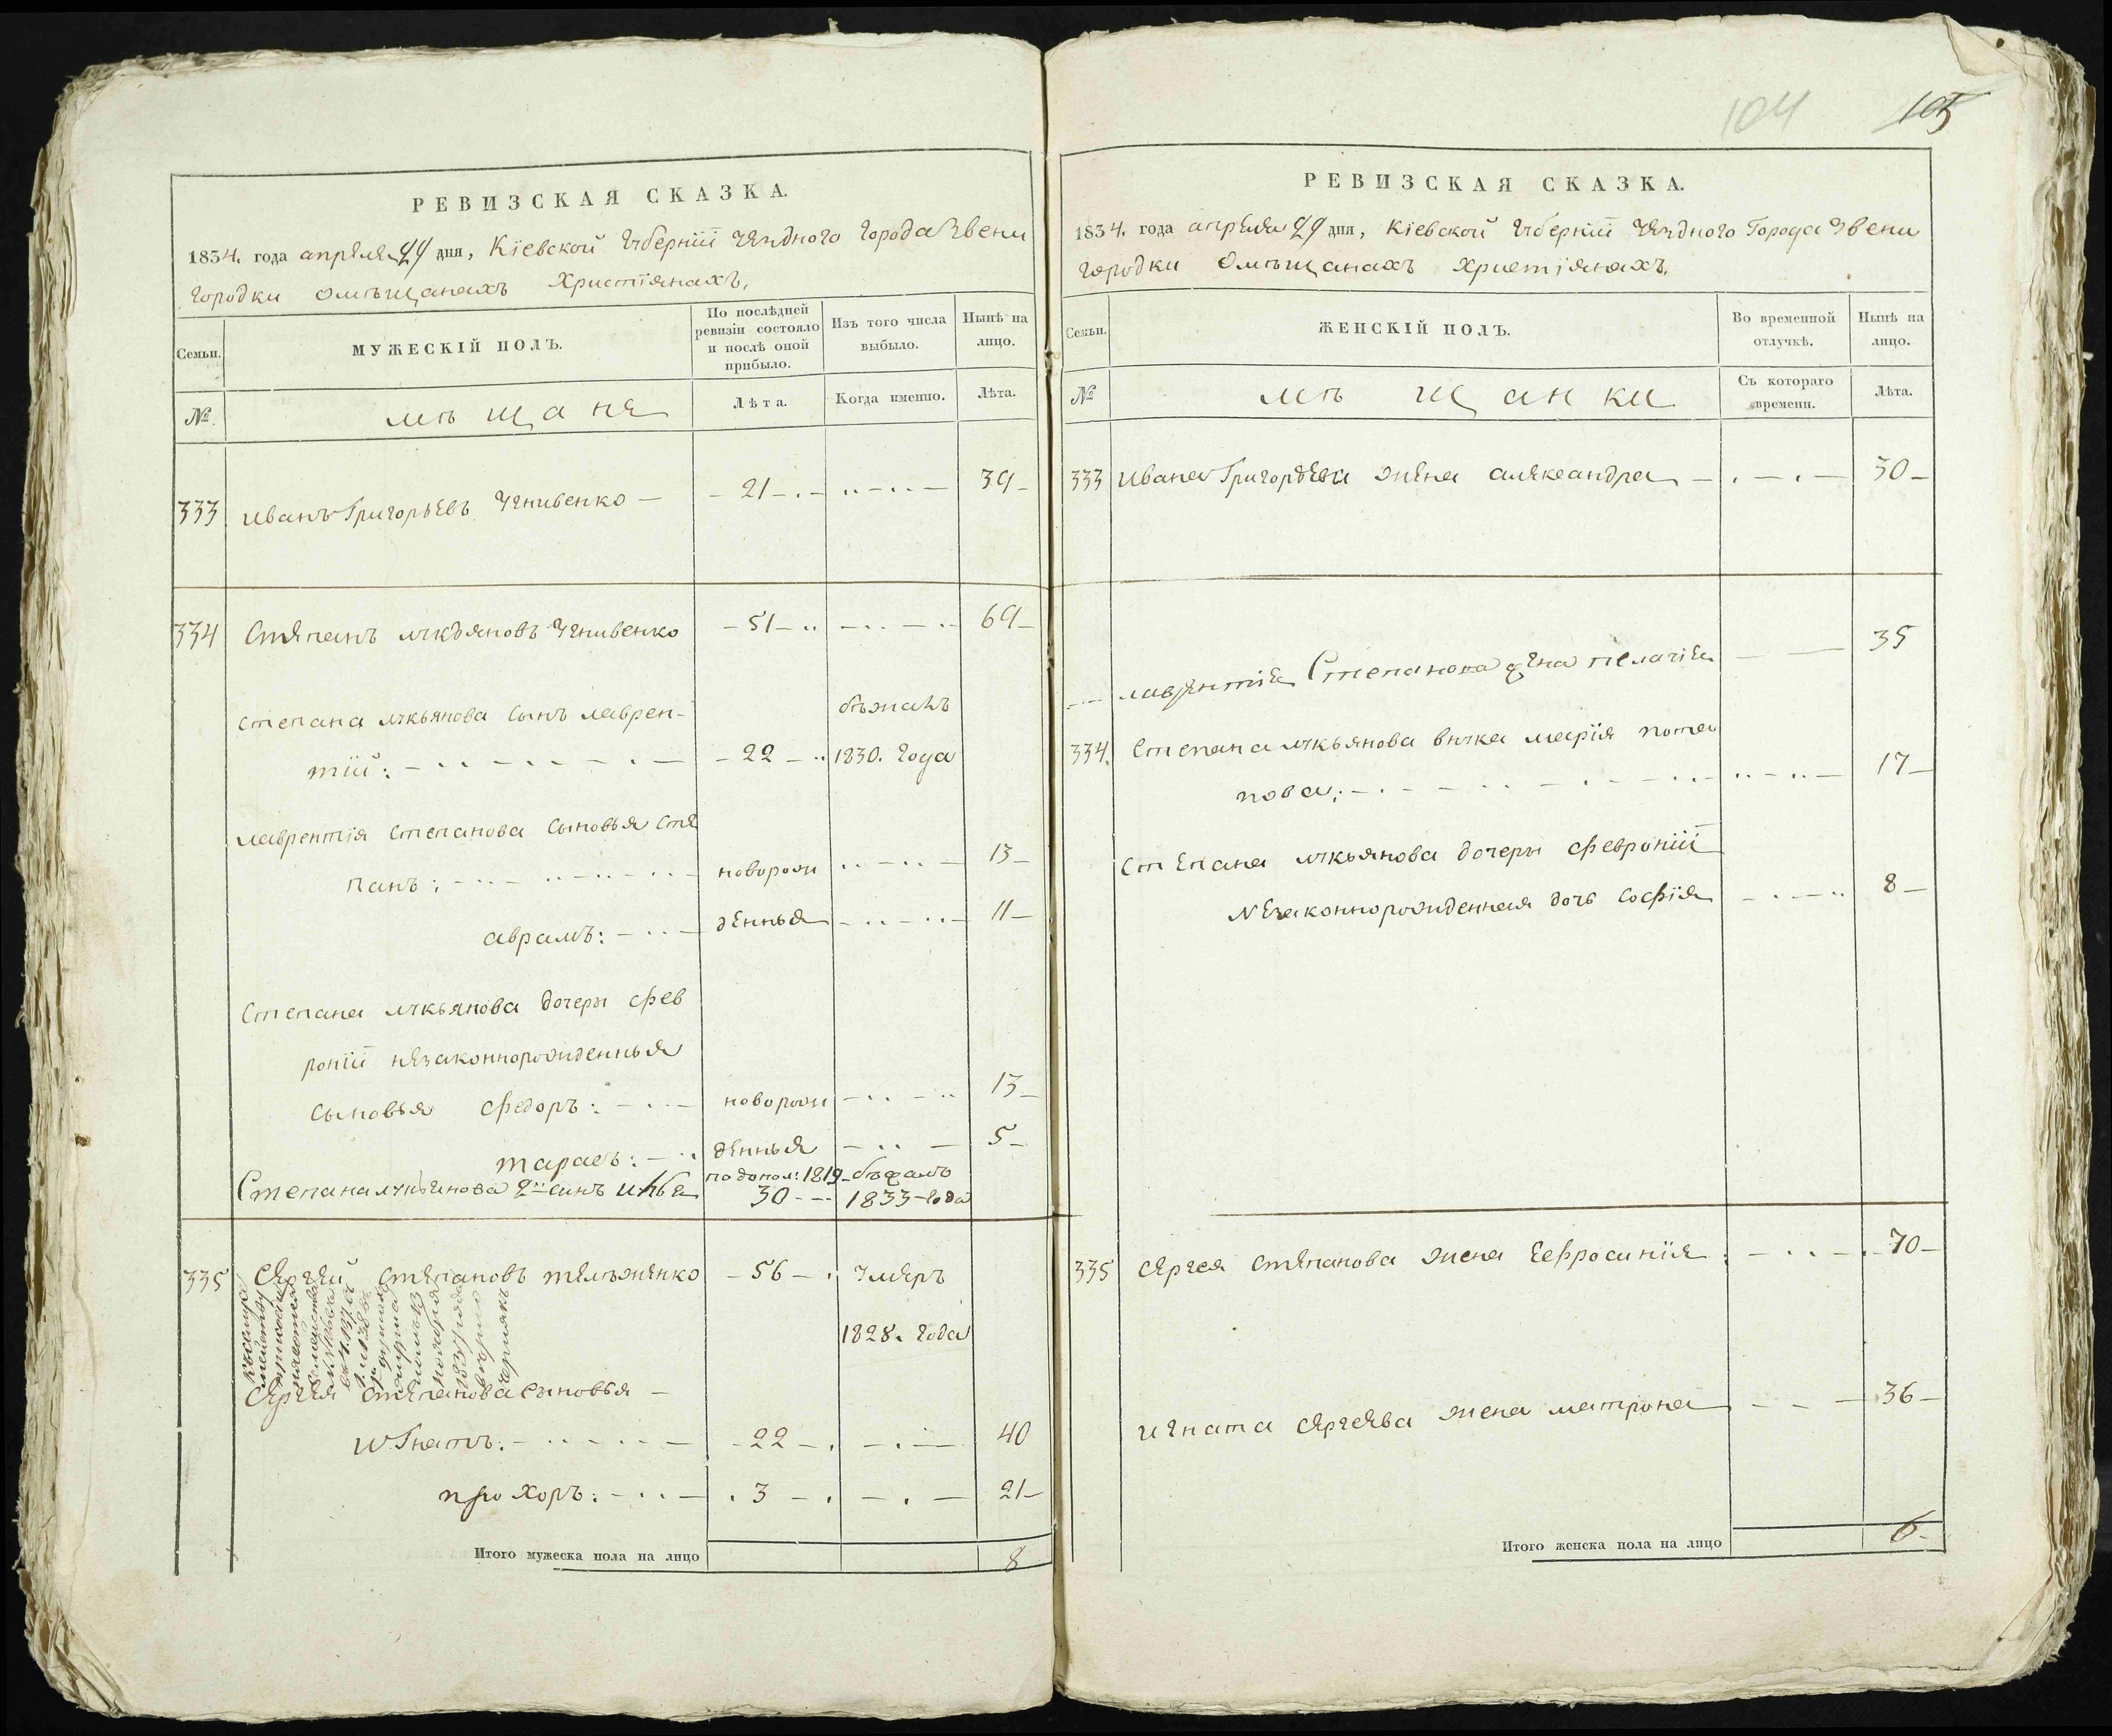 РЕВИЗСКАЯ СКАЗКА.
1834. года апреля 29 дня, Кіевской Губерніи Уезднаго Города Звени
городки омѣщанахъ Христіянахъ,
Семьи.
МУЖЕСКІЙ ПОЛЪ.
По послѣдней ревизіи состояло и послѣ оной прибыло.
Изъ того числа выбыло.
Нынѣ на лицо.
№
мѣщане
Лѣта.
Когда именно.
Лѣта.
333 иванъ Григорьевъ — 21 39
334 Степанъ лукьяновъ — 51 69
степана лукьянова сынъ лаврен- бѣжалъ
тій: — 22 1830. года
лаврентія степанова сыновья сте
панъ: — новорож — 13
аврамъ: — денныя — 11
Степана лукьянова дочери фев
роніи незаконнорожденныя
сыновья федоръ: — новорож — 13
тарасъ: — денныя — 5
Степана лукьянова 2й синъ по допол: 1819 бѣжалъ
30 1833 года
335 Сергей степановъ — 56 умеръ
1828. года
Сергея степанова сыновья —
игнатъ: — 22 — 40
прохоръ: — 3 — 21
Итого мужеска пола на лицо 8
104 105
РЕВИЗСКАЯ СКАЗКА.
1834. года апреля 29 дня, Кіевской Губерніи Уезднаго Города Звени
городки омѣщанахъ христіянахъ,
Семьи.
ЖЕНСКІЙ ПОЛЪ.
Во временной отлучкѣ.
Нынѣ на лицо.
№
мѣщанки
Съ котораго времени.
Лѣта.
333 ивана Григорьева жена александра — 30
лаврентія Степанова жена пелагія — 35
334. степана лукьянова внучка марія пота
пова: — 17
степана лукьянова дочери февроніи
незаконнорожденная дочь софія — 8
335 сергея степанова жена еефросинія — 70
игната сергеева жена матрона — 36
Итого женска пола на лицо 6